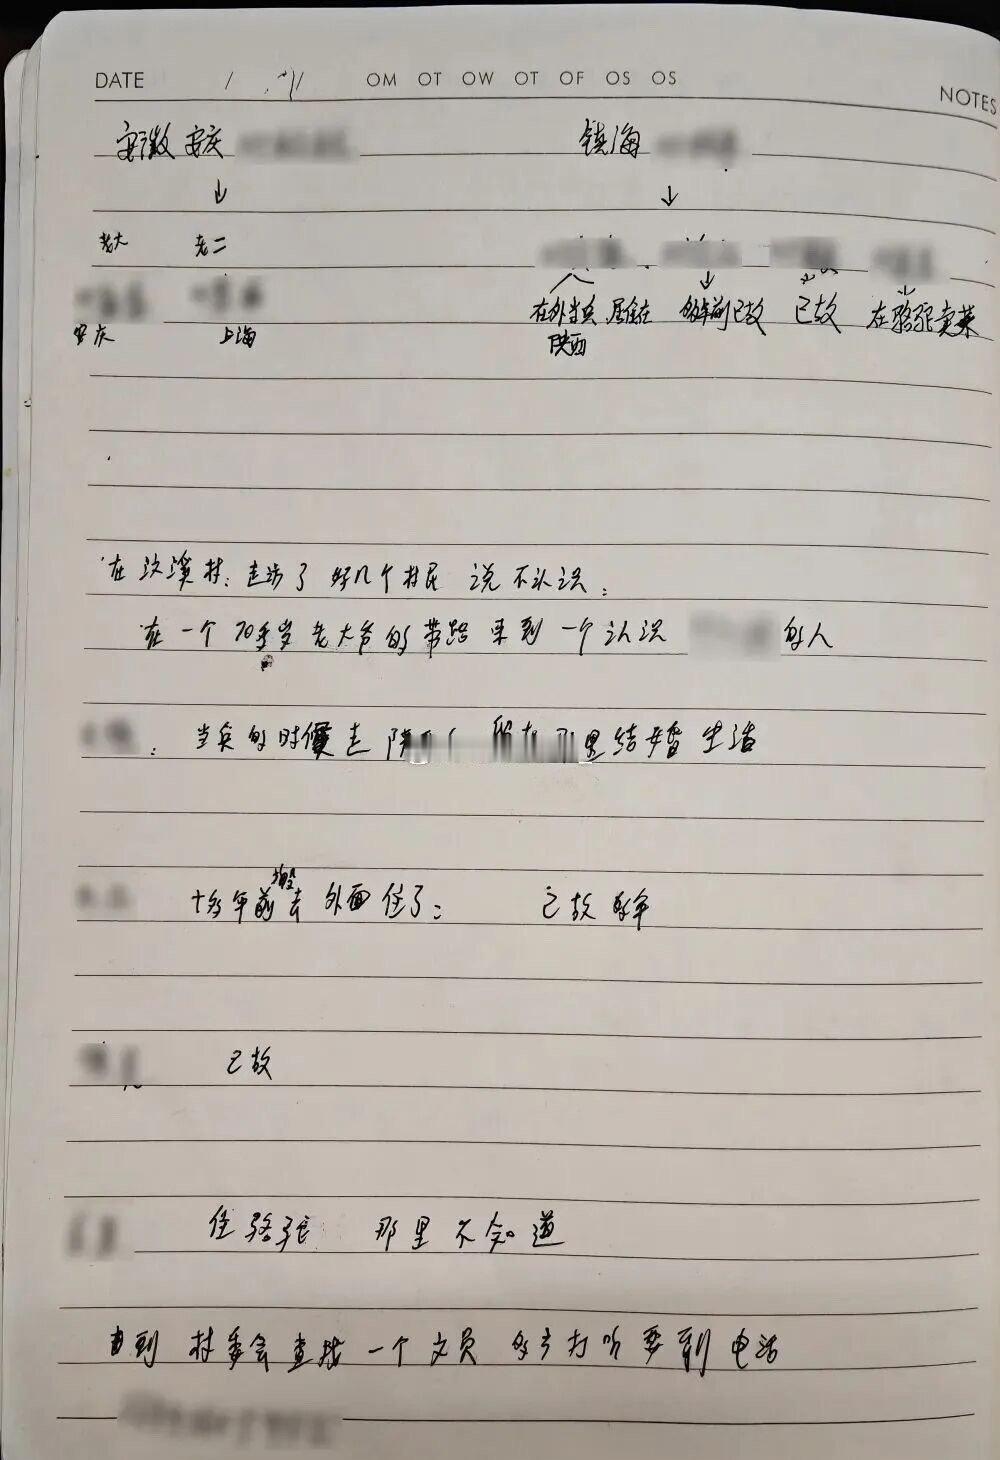 DATE 1 OM OT OW OT OF OS OS
NOTES
安徽 安庆 镇海
↓ ↓
老大 老二
在外当兵 居住在 多年前已故 已故 在骆驼卖菜
安庆 上海 陕西
在汶溪村: 走访了 好几个村民 说 不认识:
在 一个 70多岁 老大爷的 带路 来到 一个 认识 的人
: 当兵的时候去 结婚 生活
十多年前搬去 外面 住了: 已故 多年
已故
住骆驼 那里 不知道
直到 村委会 查找 一个 文员 多方打听 要到 电话